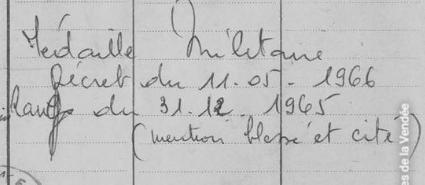 Médaille Militaire
Décret du 11-05-1966
Rang du 31.12 1965
(mention blessé et cité)
es de la Vendée